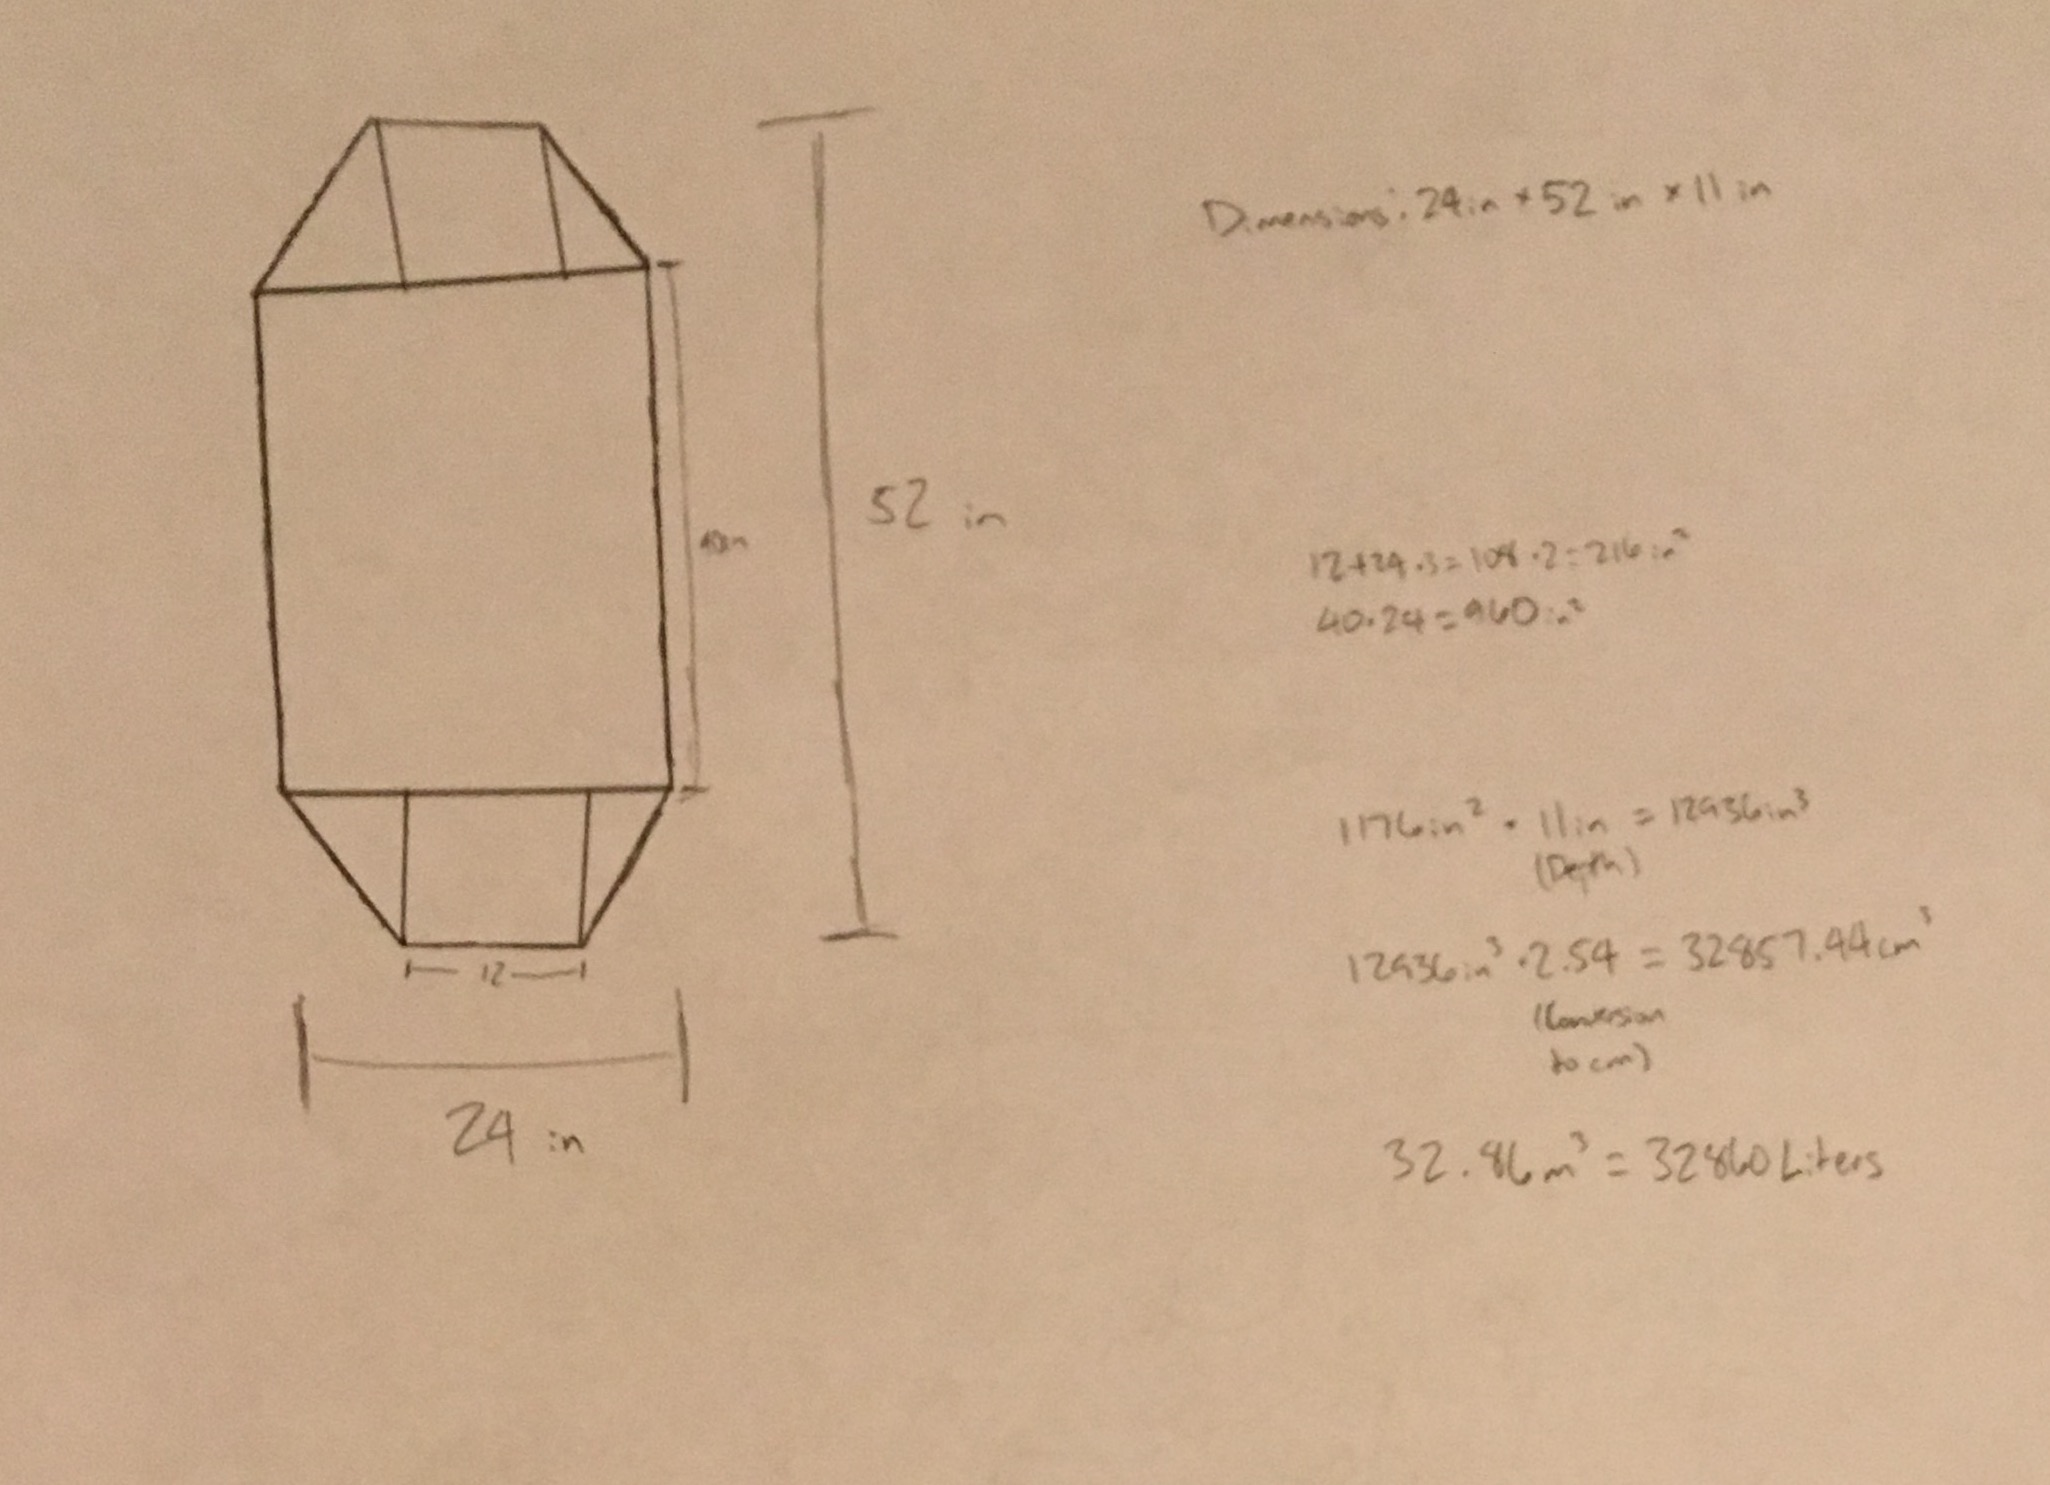 Dimensions: 24in × 52 in × 11 in
52 in
40in
12+24·3=108·2=216in²
40·24=960in²
1176in² · 11in = 12936in³
(Depth)
12936in³ · 2.54 = 32857.44cm³
(Conversion
to cm)
12
24 in
32.86m³ = 32860 Liters